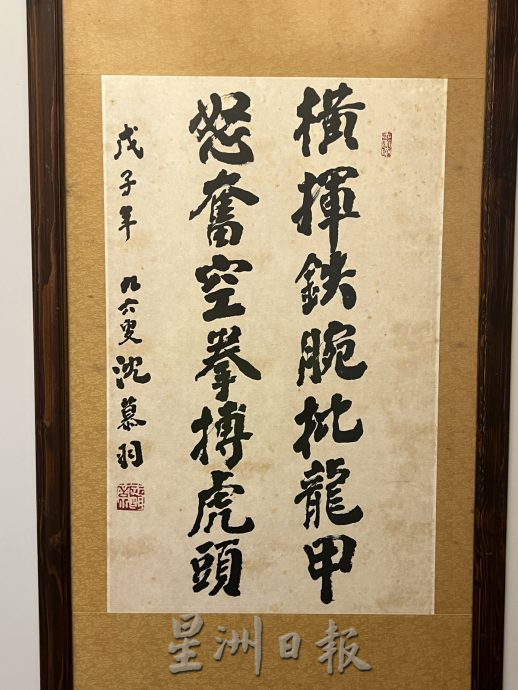 橫揮鉄腕批龍甲
怒奮空拳搏虎頭
戊子年 九六叟沈慕羽
星洲日報